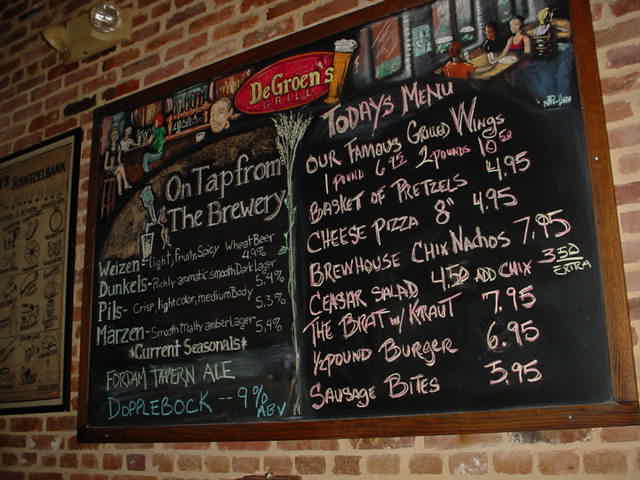 DeGroen's
GRILL
On Tap from
The Brewery
Weizen - Light, Fruity, Spicy Wheat Beer
4.9%
Dunkels - Richly-aromatic smooth Dark Lager
5.4%
Pils - Crisp, light color, medium Body
5.3%
Marzen - Smooth malty amber Lager
5.4%
*Current Seasonals*
FORDAM TAVERN ALE
DOPPLEBOCK -- 9% ABV
TODAYS MENU
OUR FAMOUS GRILLED WINGS
1 POUND 6.95 2 POUNDS 10.50
BASKET OF PRETZELS 4.95
CHEESE PIZZA 8" 4.95
BREWHOUSE CHIX NACHOS 7.95
CEASAR SALAD 4.50 ADD CHIX 3.50 EXTRA
THE BRAT W/ KRAUT 7.95
1/2 POUND BURGER 6.95
SAUSAGE BITES 5.95